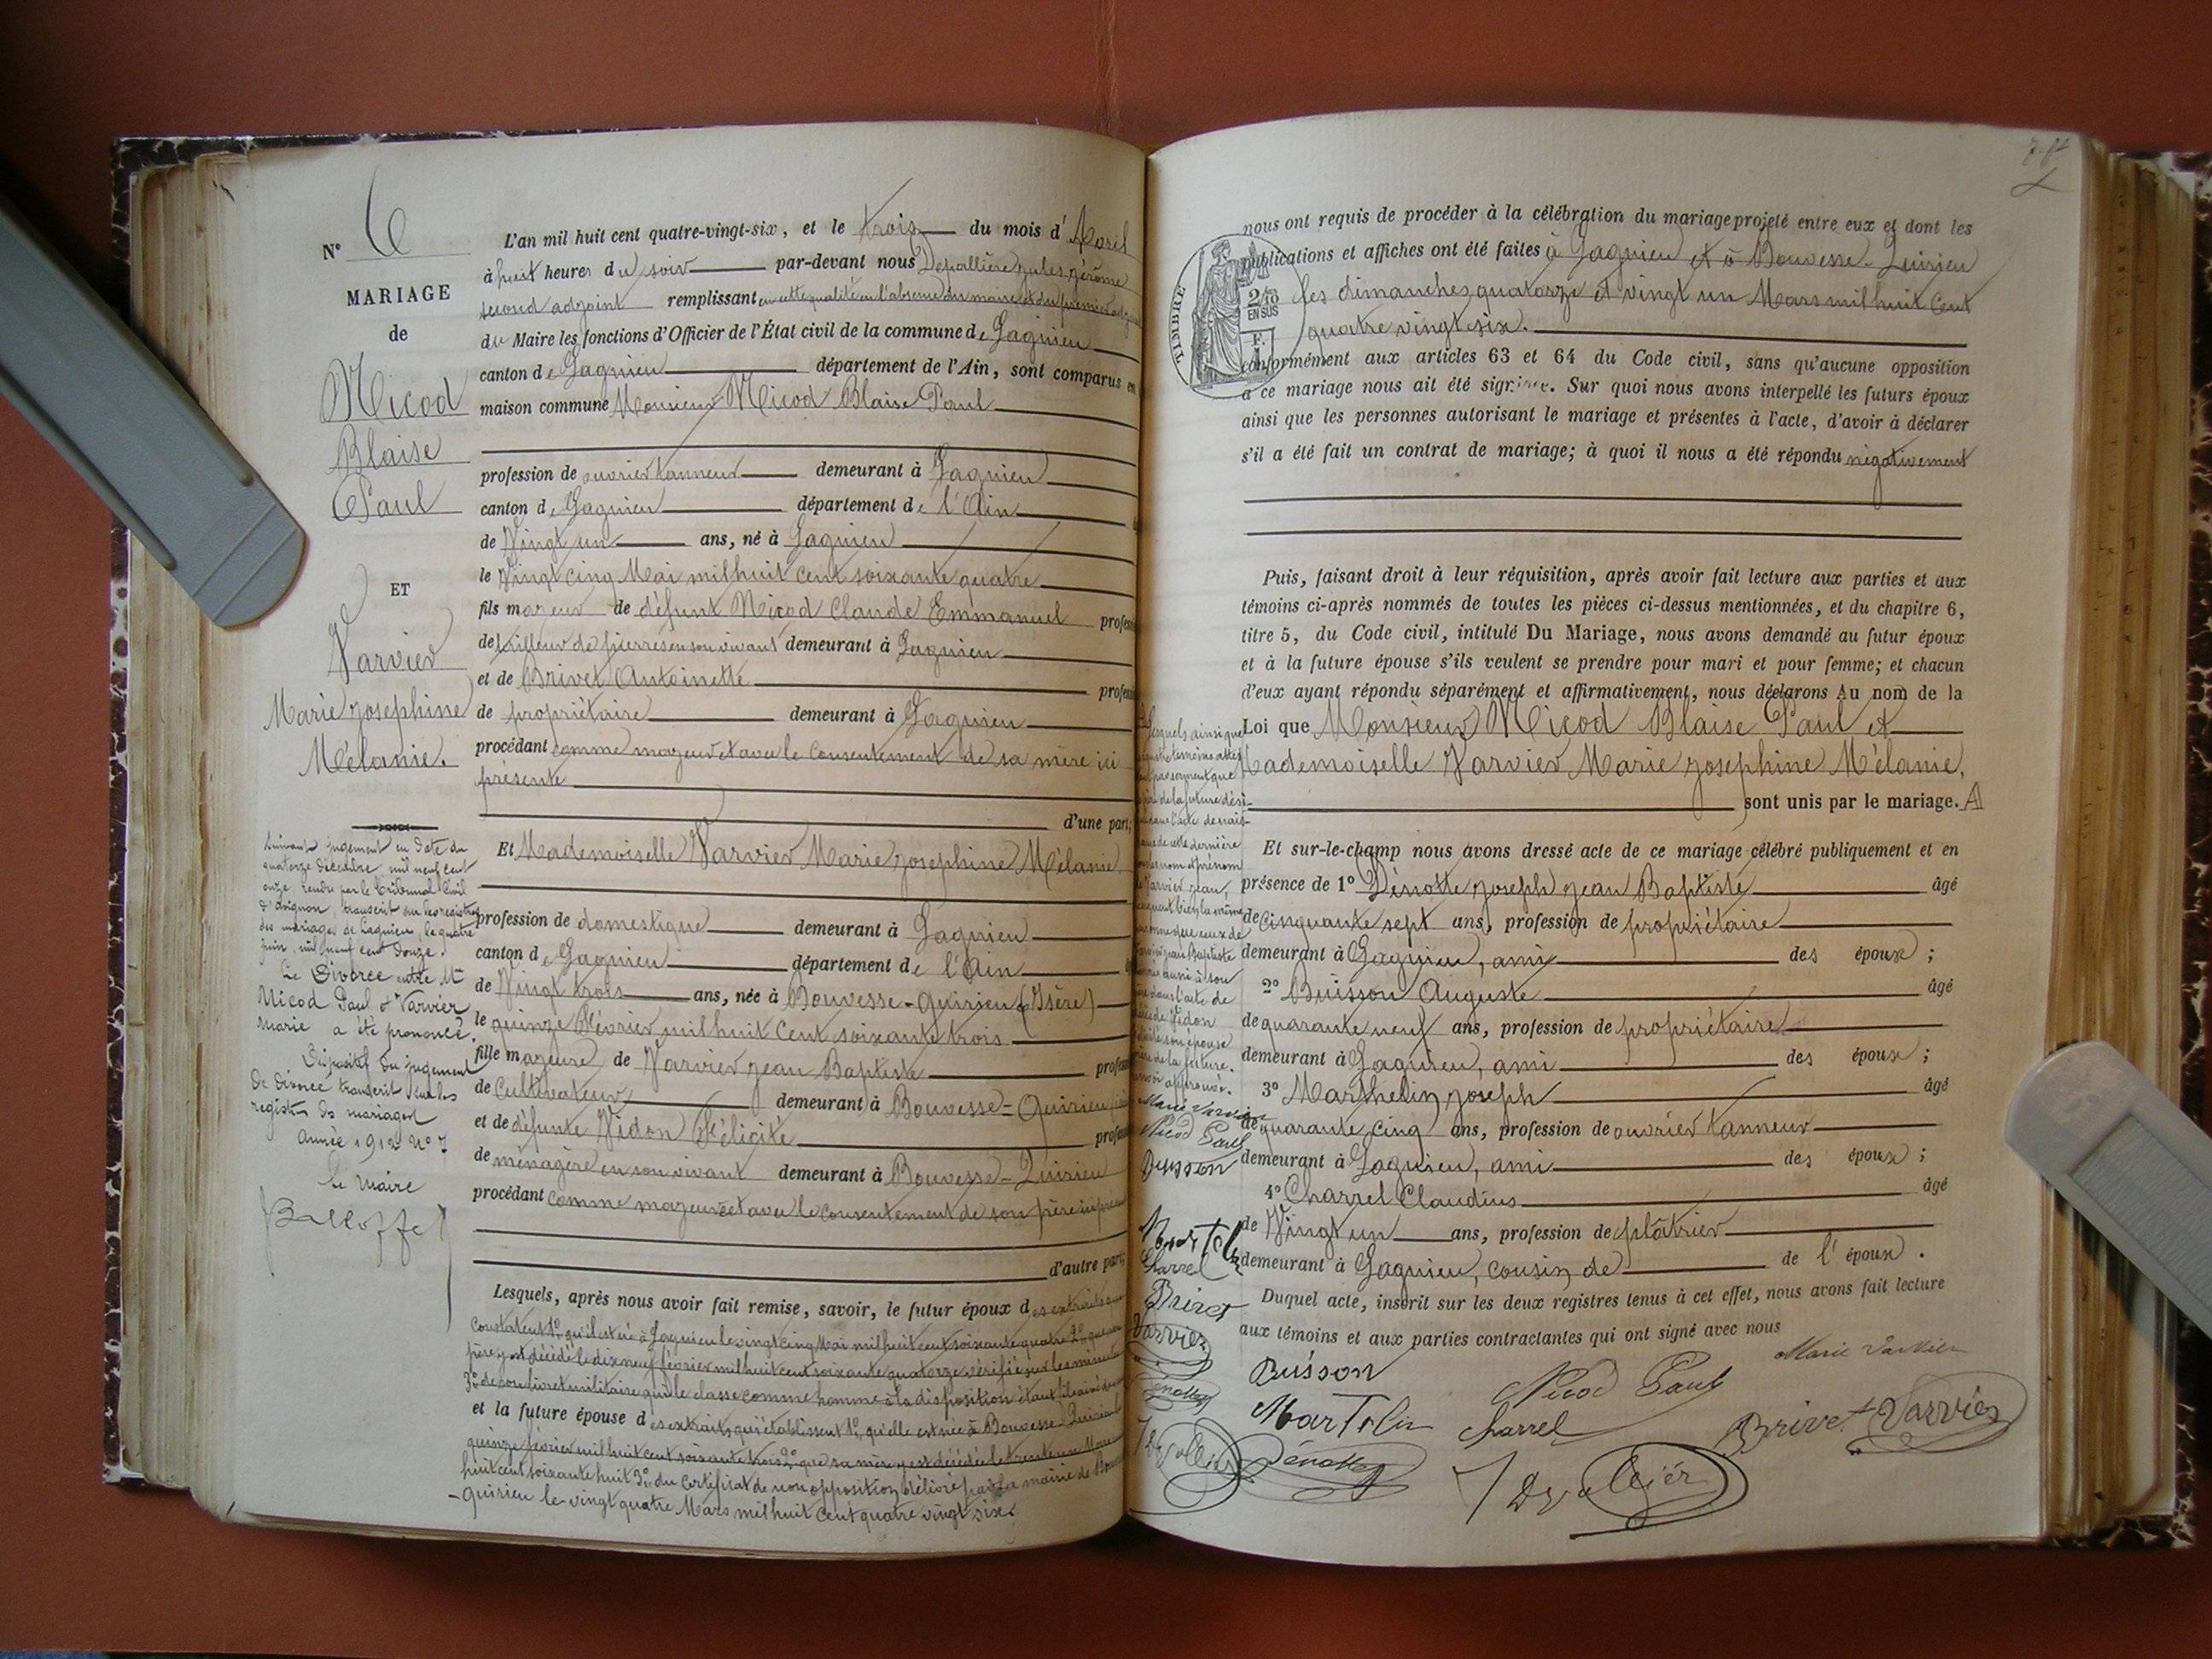 N° 6
MARIAGE
de
Nicod
Blaise
Paul
ET
Varvier
Marie Josephine
Mélanie.
Suivant jugement en date du
quatorze décembre mil neuf cent
onze rendu par le Tribunal Civil
d'Avignon, transcrit sur les registres
des mariages de Lagnieu, le quatre
juin mil neuf cent douze.
Le Divorce entre Mr
Nicod Paul & Varvier
Marie a été prononcé.
Dispositif du jugement
de divorce transcrit sur les
registres des mariages
Année 1912 N° 7
Le Maire
L'an mil huit cent quatre-vingt-six, et le trois du mois d'Avril
à huit heures du soir par-devant nous Depallière Jules Jérôme
second adjoint remplissant en cette qualité en l'absence du maire et du premier adj
du Maire les fonctions d'Officier de l'État civil de la commune de Lagnieu
canton de Lagnieu département de l'Ain, sont comparus en
maison commune Monsieur Nicod Blaise Paul
profession de ouvrier tanneur demeurant à Lagnieu
canton de Lagnieu département de l'Ain
de Vingt un ans, né à Lagnieu
le Vingt cinq Mai mil huit cent soixante quatre
fils majeur de défunt Nicod Claude Emmanuel profess
de tailleur de pierres en son vivant demeurant à Lagnieu
et de Brivet Antoinette profess
de propriétaire demeurant à Lagnieu
procédant comme majeur et avec le consentement de sa mère ici
présente
d'une part;
Et Mademoiselle Varvier Marie Josephine Mélanie
profession de domestique demeurant à Lagnieu
canton de Lagnieu département de l'Ain
de Vingt trois ans, née à Bouvesse-Quirieu (Isère)
le quinze Février mil huit cent soixante trois
fille majeure de Varvier Jean Baptiste profess
de Cultivateur demeurant à Bouvesse=Quirieu
et de défunte Vidon Félicité profess
de ménagère en son vivant demeurant à Bouvesse-Quirieu
procédant comme majeure et avec le consentement de son père ici présen
d'autre part;
Lesquels, après nous avoir fait remise, savoir, le futur époux des extraits qui
constatent 1° qu'il est né à Lagnieu le vingt cinq Mai mil huit cent soixante quatre 2° que son
père y est décédé le dix neuf février mil huit cent soixante quatorze vérifié sur les minutes
3° de son livret militaire qui le classe comme homme à la disposition étant fils aîné de
et la future épouse des extraits qui établissent 1° qu'elle est née à Bouvesse-Quirieu le
quinze février mil huit cent soixante trois 2° que sa mère y est décédée le trente un Mars
huit cent soixante huit 3° du certificat de non opposition délivré par la mairie de Bouv
-Quirieu le vingt quatre Mars mil huit cent quatre vingt six.
TIMBRE
2/10
EN SUS
F.
nous ont requis de procéder à la célébration du mariage projeté entre eux et dont les
publications et affiches ont été faites à Lagnieu et à Bouvesse-Quirieu
les dimanches quatorze et vingt un Mars mil huit Cent
quatre vingt six.
conformément aux articles 63 et 64 du Code civil, sans qu'aucune opposition
à ce mariage nous ait été signifiée. Sur quoi nous avons interpellé les futurs époux
ainsi que les personnes autorisant le mariage et présentes à l'acte, d'avoir à déclarer
s'il a été fait un contrat de mariage; à quoi il nous a été répondu négativement
Puis, faisant droit à leur réquisition, après avoir fait lecture aux parties et aux
témoins ci-après nommés de toutes les pièces ci-dessus mentionnées, et du chapitre 6,
titre 5, du Code civil, intitulé Du Mariage, nous avons demandé au futur époux
et à la future épouse s'ils veulent se prendre pour mari et pour femme; et chacun
d'eux ayant répondu séparément et affirmativement, nous déclarons Au nom de la
Loi que Monsieur Nicod Blaise Paul et
Mademoiselle Varvier Marie Josephine Mélanie,
sont unis par le mariage. A
Et sur-le-champ nous avons dressé acte de ce mariage célébré publiquement et en
présence de 1° Dénotte Joseph Jean Baptiste âgé
de Cinquante sept ans, profession de propriétaire
demeurant à Lagnieu, ami des époux;
2° Buisson Auguste âgé
de quarante neuf ans, profession de propriétaire
demeurant à Lagnieu, ami des époux;
3° Marthelin Joseph âgé
de quarante cinq ans, profession de ouvrier tanneur
demeurant à Lagnieu, ami des époux;
4° Charrel Claudius âgé
de Vingt un ans, profession de plâtrier
demeurant à Lagnieu, cousin de de l'époux.
Duquel acte, inscrit sur les deux registres tenus à cet effet, nous avons fait lecture
aux témoins et aux parties contractantes qui ont signé avec nous
Marie Varvier
Buisson Nicod Paul
Martelin Charrel Brivet Varvier
Dénotte Depallière
Lesquels ainsi que
de la future
de cette dernière
Varvier Jean,
Jean Baptiste
dans l'acte de
Vidon
son épouse
de la future.
Marie Varvier
Nicod Paul
Buisson
Martel
Charrel
Brivet
Varvier
Dénotte